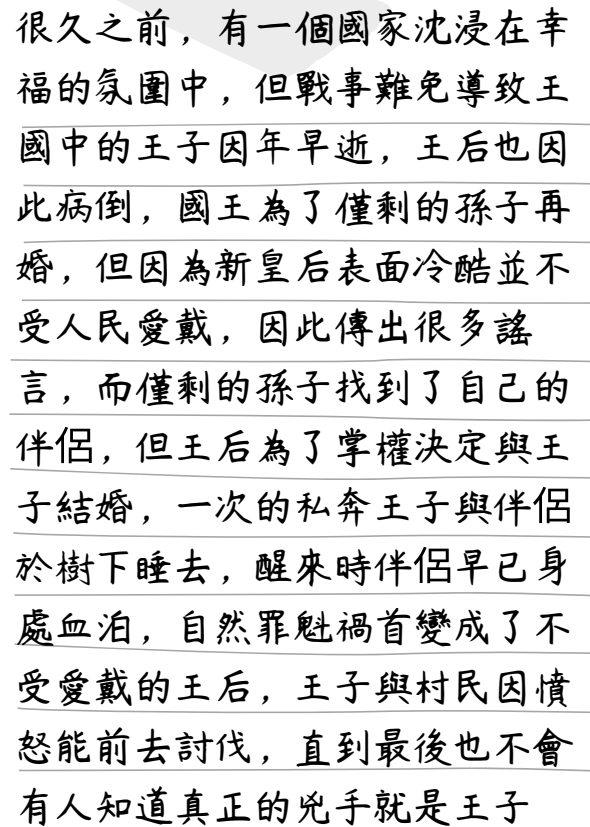 很久之前，有一個國家沈浸在幸
福的氛圍中，但戰事難免導致王
國中的王子因年早逝，王后也因
此病倒，國王為了僅剩的孫子再
婚，但因為新皇后表面冷酷並不
受人民愛戴，因此傳出很多謠
言，而僅剩的孫子找到了自己的
伴侶，但王后為了掌權決定與王
子結婚，一次的私奔王子與伴侶
於樹下睡去，醒來時伴侶早已身
處血泊，自然罪魁禍首變成了不
受愛戴的王后，王子與村民因憤
怒能前去討伐，直到最後也不會
有人知道真正的兇手就是王子